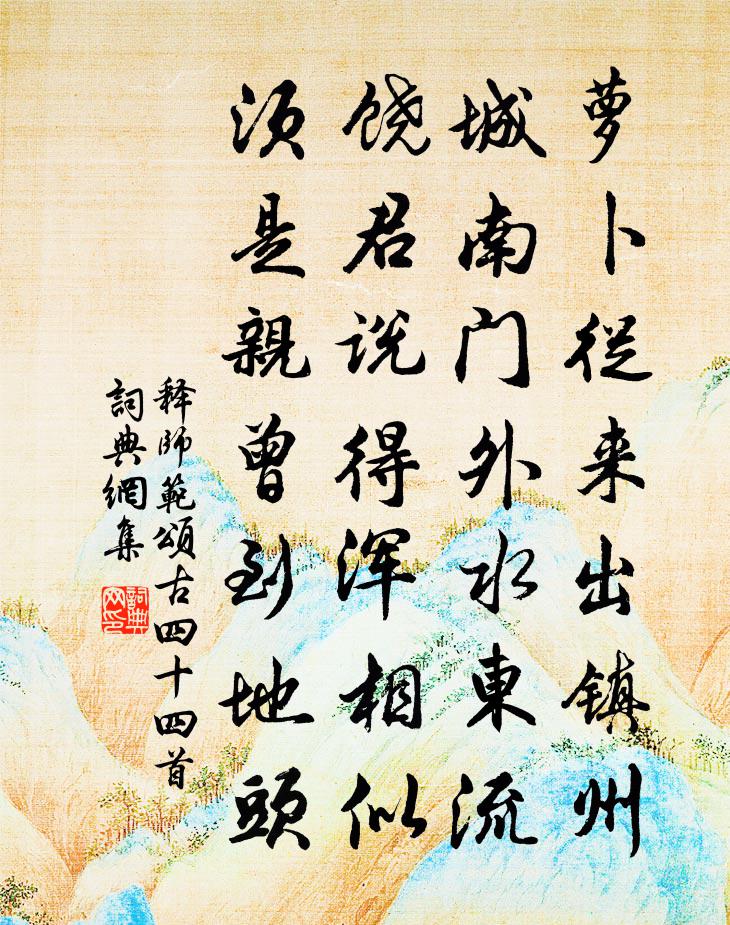 萝卜從来出镇州
城南门外水東流
饶君说得浑相似
须是親曾到地頭
释師範頌古四十四首
詞典網集
詞典网印